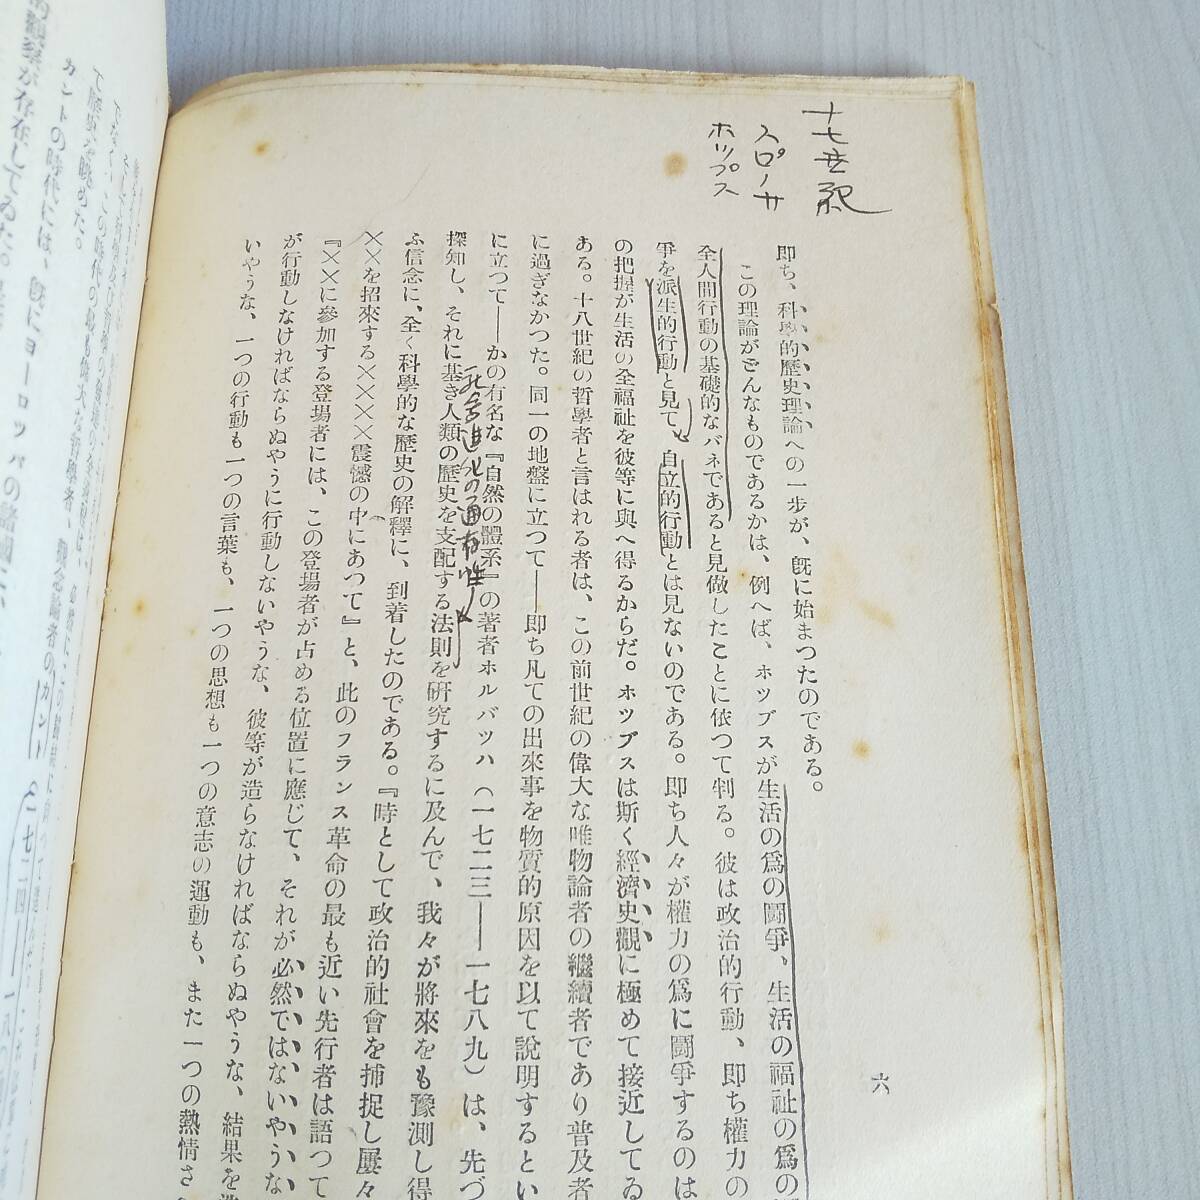 十七世紀
スピノザ
ホッブス
六
即ち、科學的歷史理論への一步が、旣に始まつたのである。
この理論がどんなものであるかは、例へば、ホツブスが生活の爲の鬪爭、生活の福祉の爲の
全人間行動の基礎的なバネであると見做したことに依つて判る。彼は政治的行動、卽ち權力の
爭を派生的行動と見て、自立的行動とは見ないのである。卽ち人々が權力の爲に鬪爭するのは
の把握が生活の全福祉を彼等に與へ得るからだ。ホツブスは斯く經濟史觀に極めて接近してる
ある。十八世紀の哲學者と言はれる者は、この前世紀の偉大な唯物論者の繼續者であり普及者
に過ぎなかつた。同一の地盤に立つて——卽ち凡ての出來事を物質的原因を以て說明するとい
に立つて——かの有名な『自然の體系』の著者ホルバツハ（一七二三——一七八九）は、先づ
探知し、それに基き人類の歷史を支配する法則を硏究するに及んで、我々が將來をも豫測し得
進化の通有性
ふ信念に、全く科學的な歷史の解釋に、到着したのである。『時として政治的社會を捕捉し屢々
××を招來する××××震憾の中にあつて』と、此のフランス革命の最も近い先行者は語つて
『××に參加する登場者には、この登場者が占める位置に應じて、それが必然ではないやうな
が行動しなければならぬやうに行動しないやうな、彼等が造らなければならぬやうな、結果を
いやうな、一つの行動も一つの言葉も、一つの思想も一つの意志の運動も、また一つの熱情さ
て歷史を眺めた。
カントの時代には、旣にヨーロッパの諸國に
的觀察が存在してゐた。